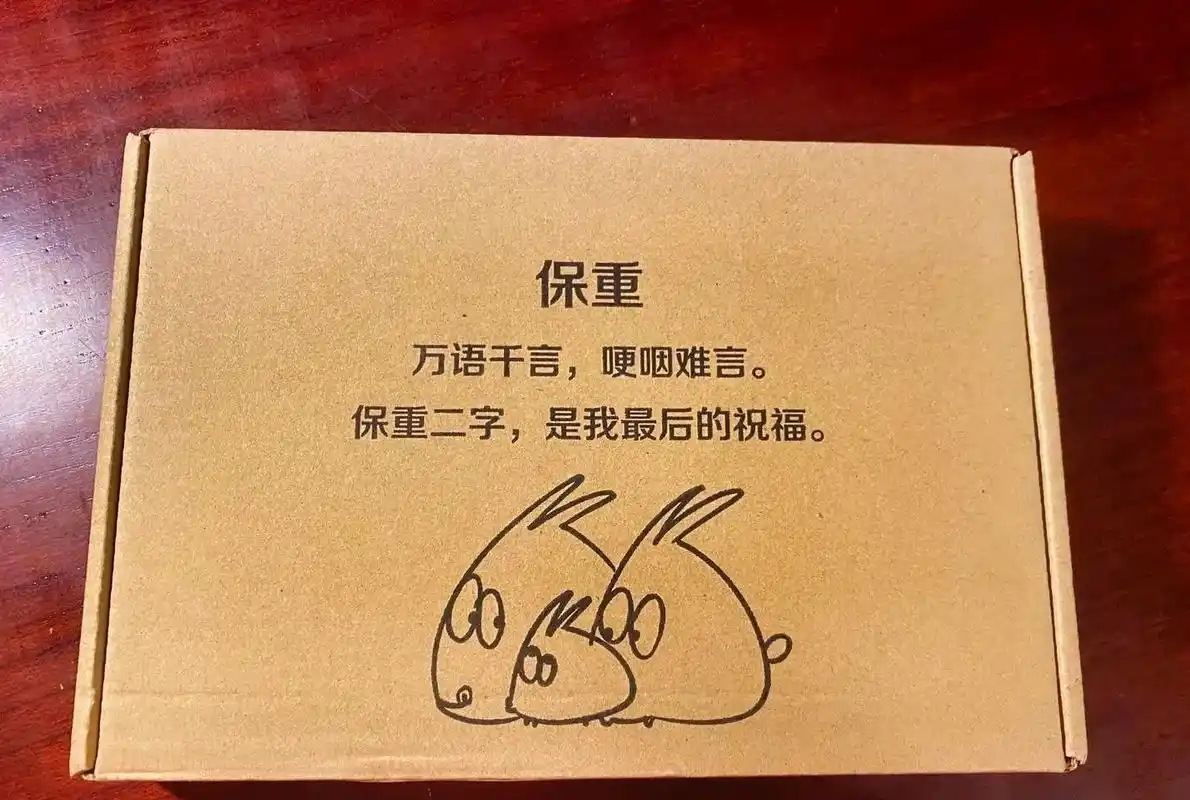 保重
万语千言，哽咽难言。
保重二字，是我最后的祝福。